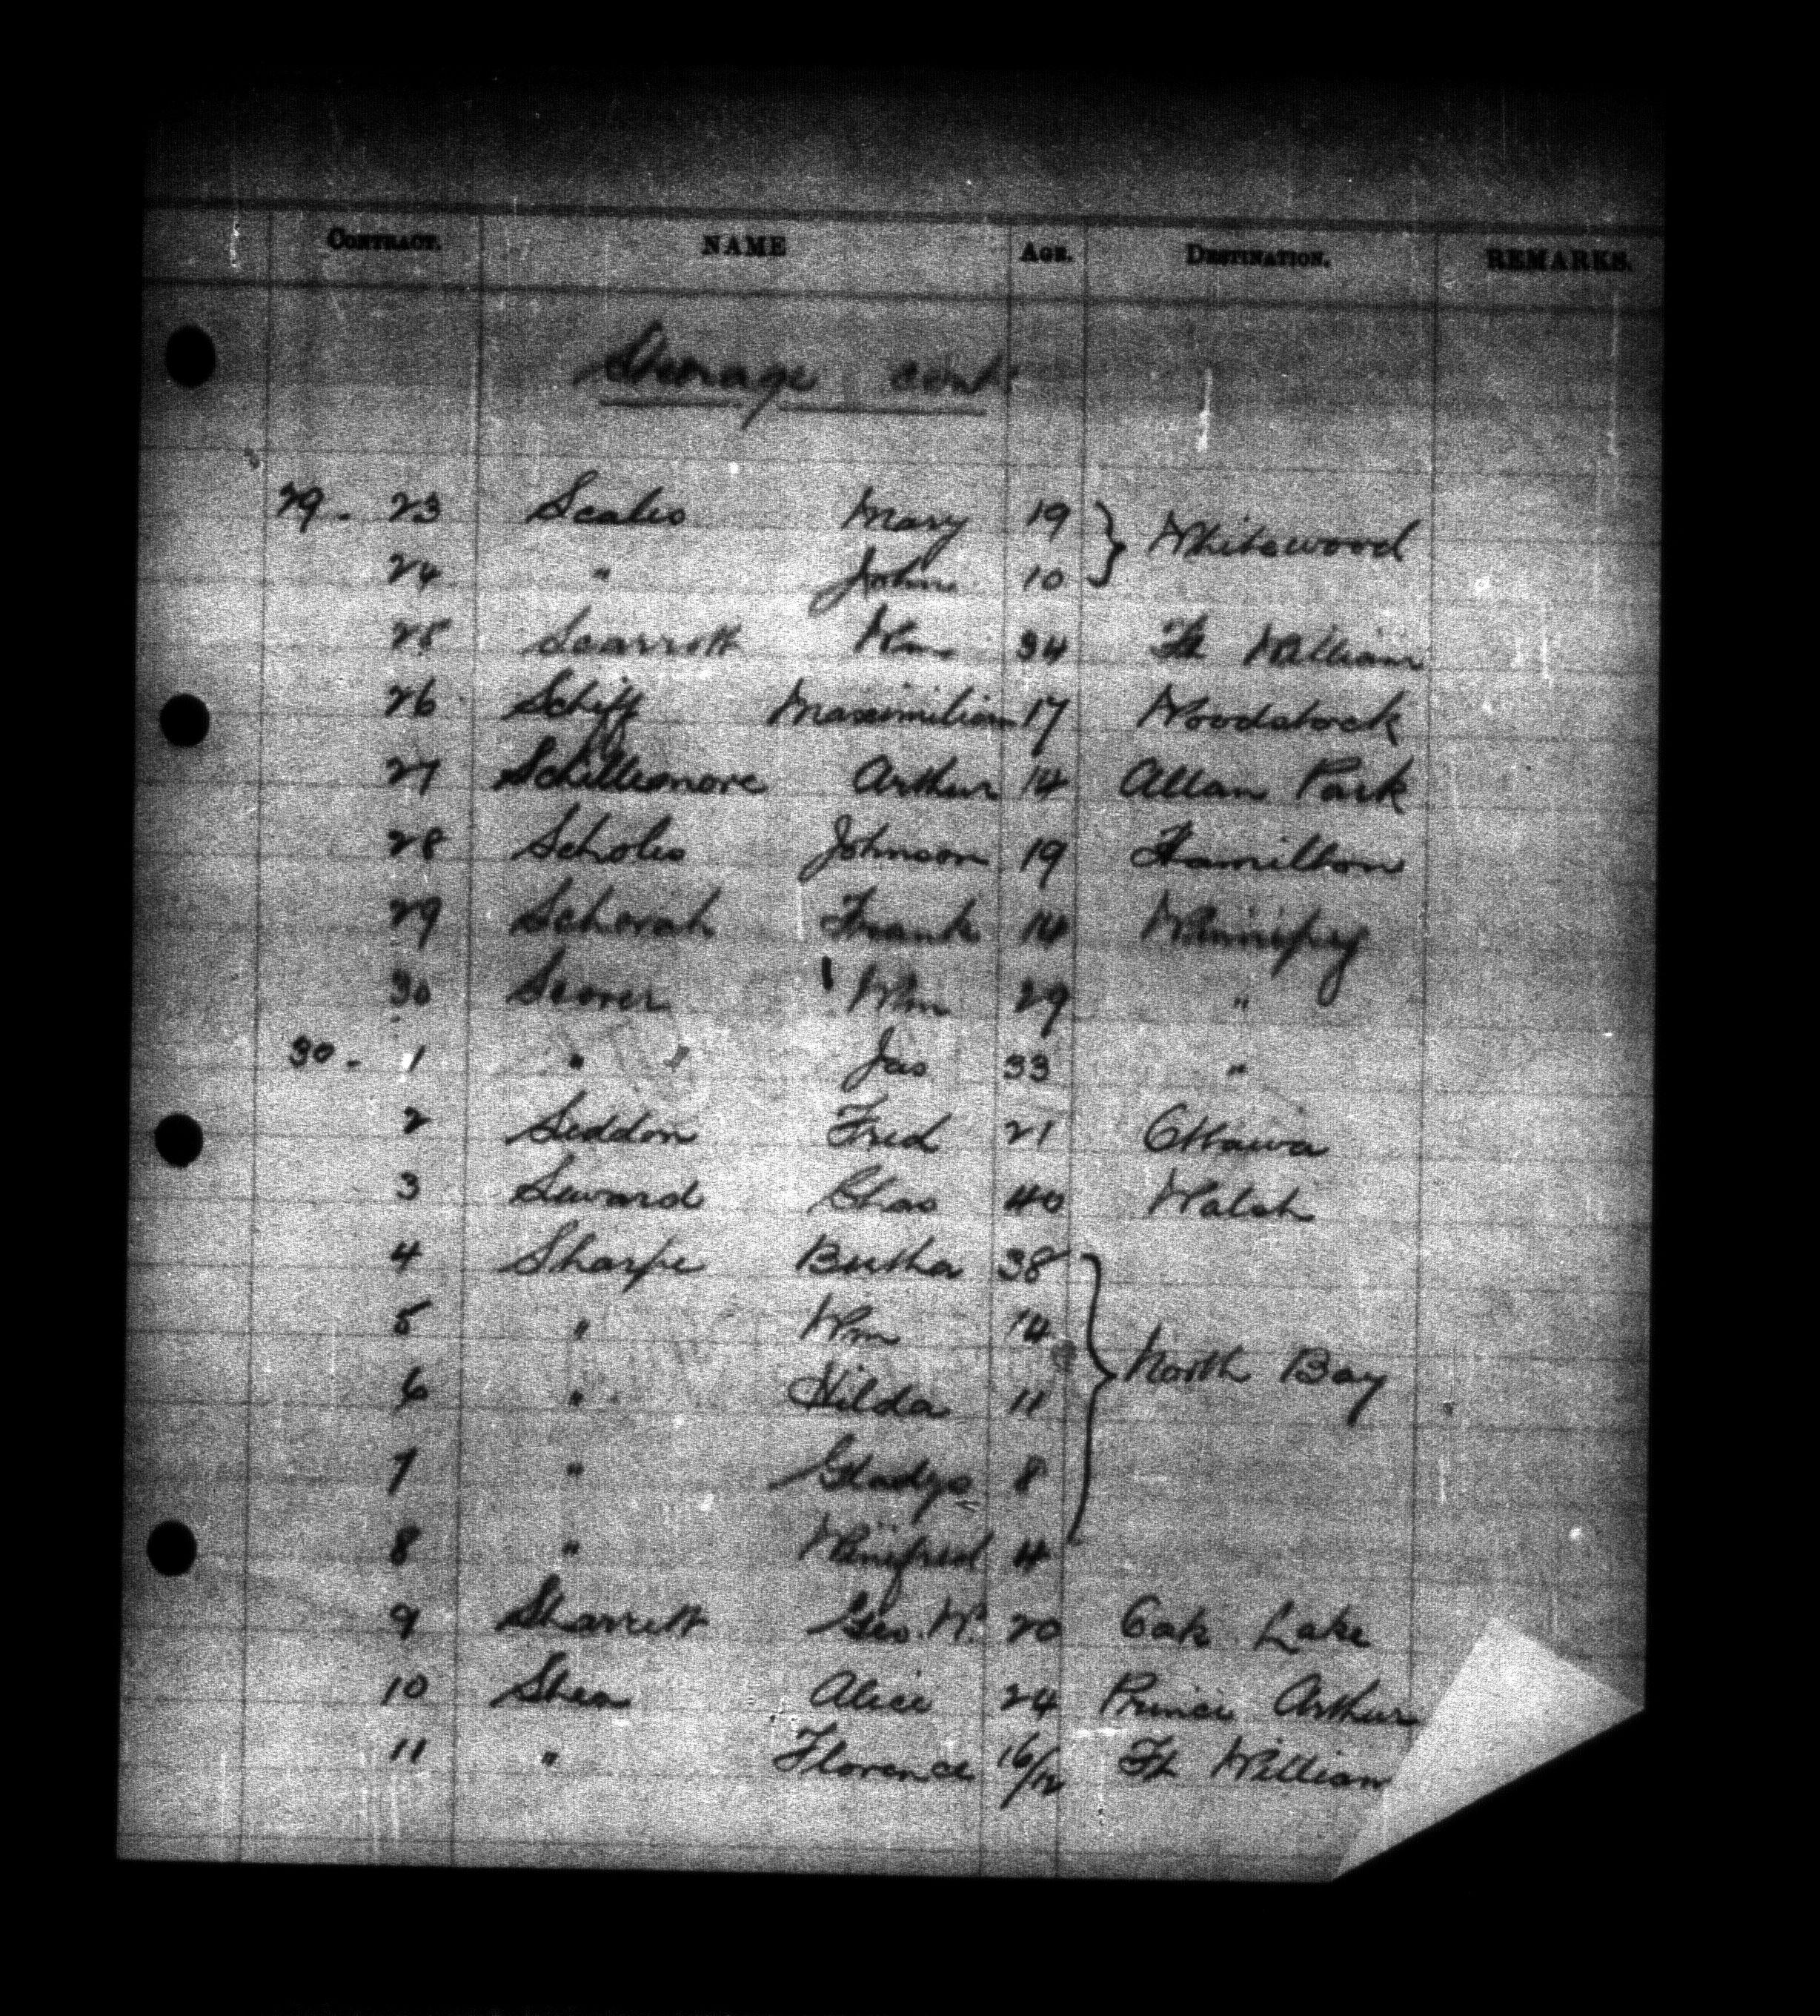 CONTRACT. NAME AGE. DESTINATION. REMARKS.
Steerage cont.
29 - 23 Scales Mary 19 } Whitewood
24 " John 10
25 Scarrott Wm 34 Ft William
26 Schiff Maximilian 17 Woodstock
27 Schillemore Arthur 14 Allan Park
28 Scholes Johnson 19 Hamilton
29 Schorah Frank 14 Winnipeg
30 Scorer Wm 29 "
30 - 1 " Jas 33 "
2 Seddon Fred 21 Ottawa
3 Seward Chas 40 Walsh
4 Sharpe Bertha 38 } North Bay
5 " Wm 14
6 " Hilda 11
7 " Gladys 8
8 " Winifred 4
9 Sharrett Geo. W. 20 Oak Lake
10 Shea Alice 24 Prince Arthur
11 " Florence 16/12 Ft William